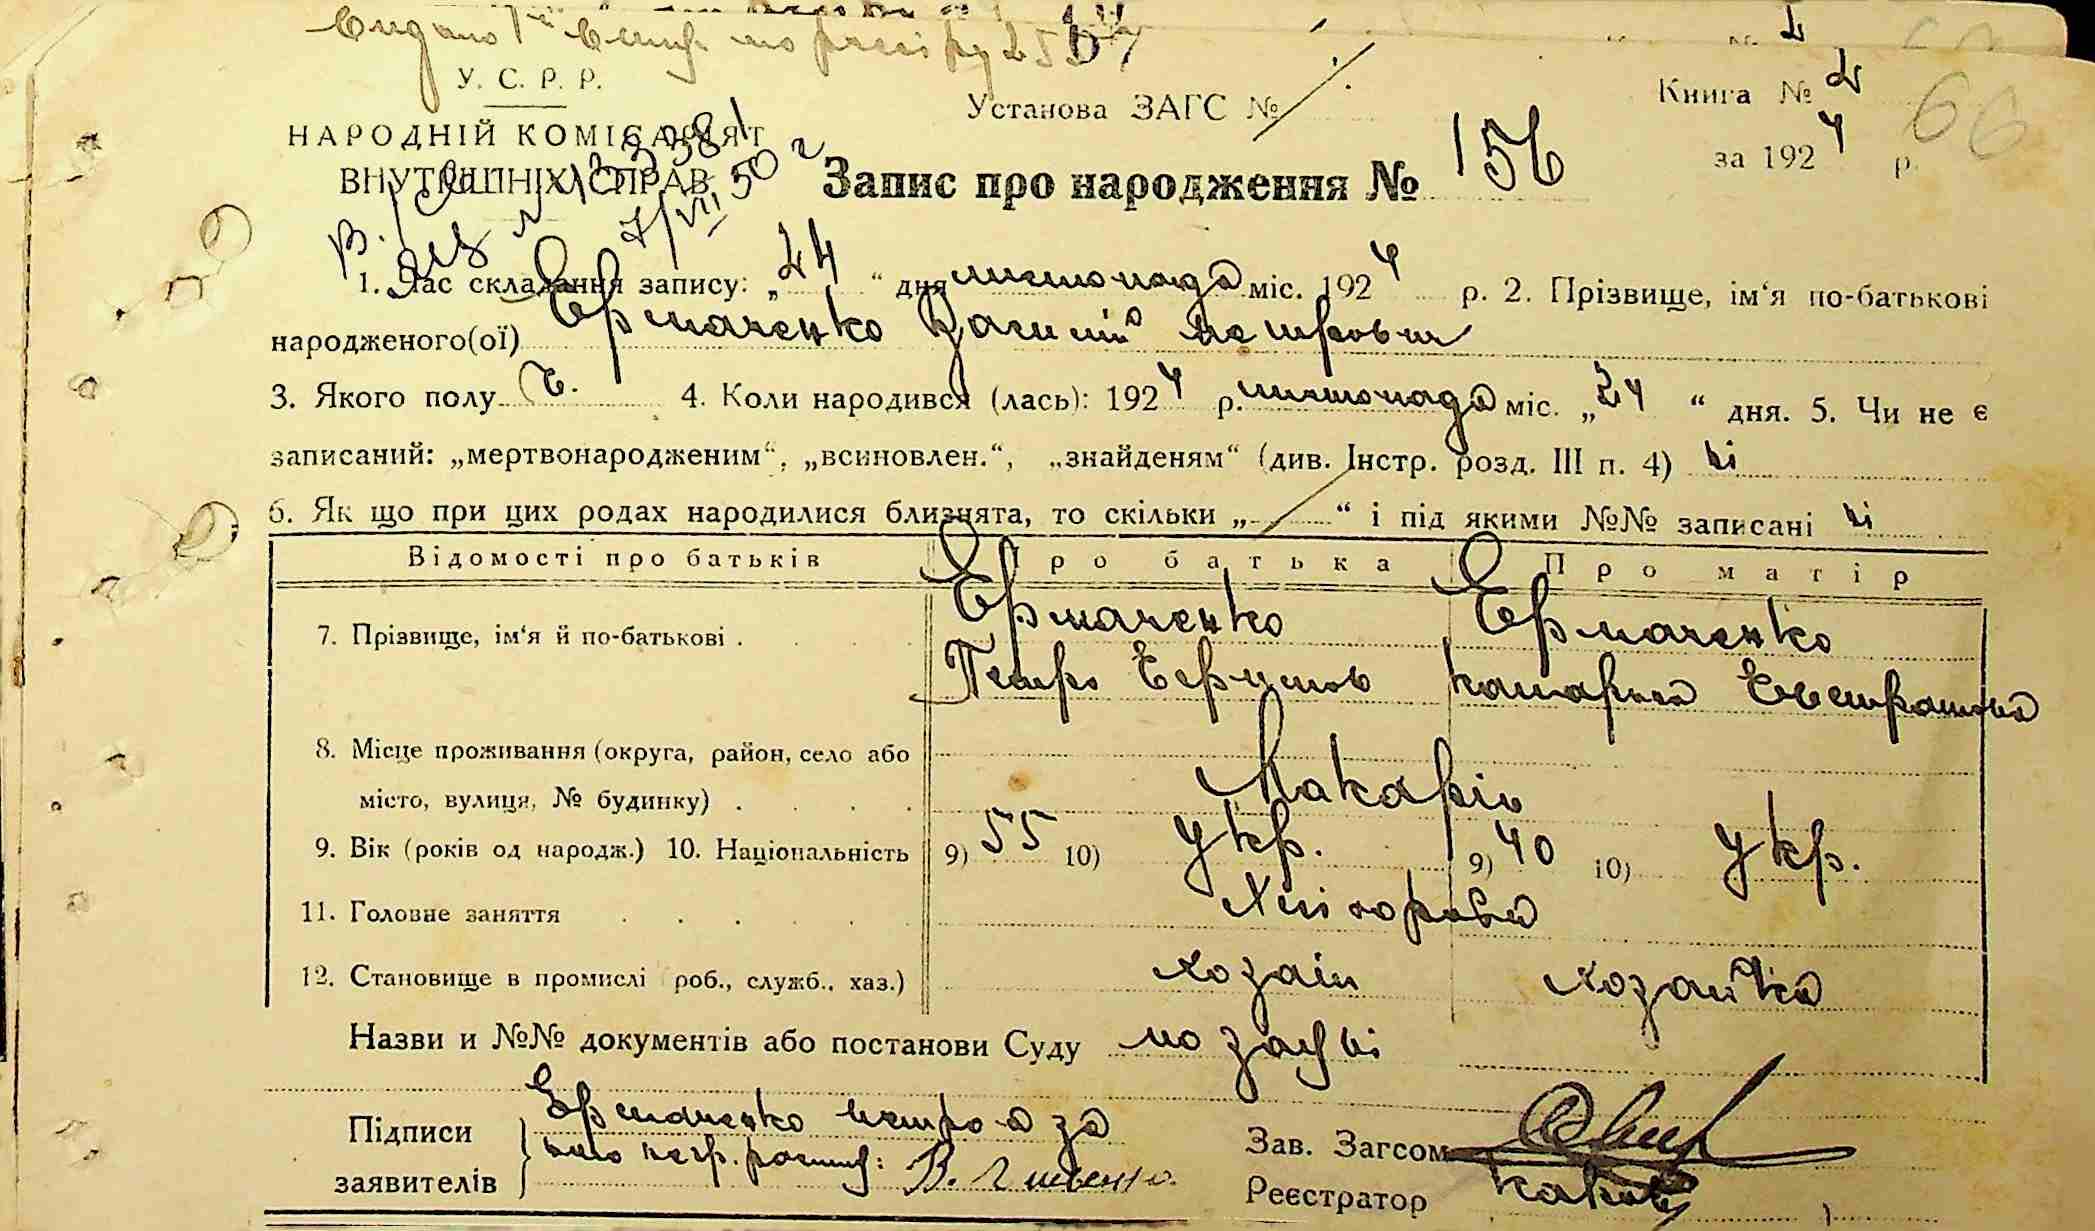 У. С. Р. Р.
Установа ЗАГС №
Книга № 2
66
НАРОДНІЙ КОМІСАРІЯТ
за 1924 р.
ВНУТРІШНІХ СПРАВ
7/VII 50 г
Запис про народження № 156
1. Час складання запису: „24“ дня листопада міс. 1924 р. 2. Прізвище, ім‘я по-батькові
народженого(ої) Єрмаченко Василій Петрович
3. Якого полу ч. 4. Коли народився (лась): 1924 р. листопада міс. „24“ дня. 5. Чи не є
записаний: „мертвонародженим“, „всиновлен.“, „знайденям“ (див. Інстр. розд. III п. 4) ні
6. Як що при цих родах народилися близнята, то скільки „ “ і під якими №№ записані ні
Відомості про батьків Про батька Про матір
7. Прізвище, ім‘я й по-батькові . Єрмаченко Єрмаченко
Петро Евстратова
8. Місце проживання (округа, район, село або
місто, вулиця, № будинку) . Макарів
9. Вік (років од народж.) 10. Національність 9) 55 10) укр. 9) 40 10) укр.
11. Головне заняття Хліборобство
12. Становище в промислі роб., служб., хаз.) хозаїн хозайка
Назви и №№ документів або постанови Суду по заяві
Підписи заявителів Єрмаченко Петро а за
його негр. распис:
Зав. Загсом
Реєстратор